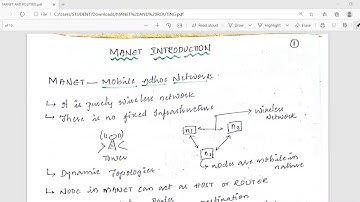 MANET AND ROUTING.pdf
C:/Users/STUDENT/Downloads/MANET%20AND%20ROUTING.pdf
of 15
MANET INTRODUCTION
1
MANET - Mobile Adhoc Network
↳ It is purely wireless network
↳ There is no fixed Infrastructure
wireless
Network
n1
n2
n3
Tower
↳ nodes are mobile in
nature
↳ Dynamic Topologies
↳ NODE IN MANET CAN ACT AS HOST OR ROUTER
Router
destination